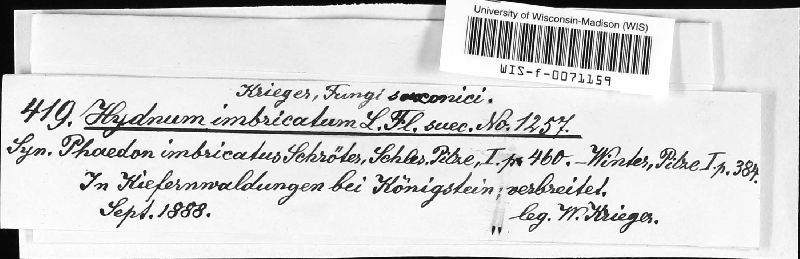 University of Wisconsin-Madison (WIS)
WIS-f-0071159
Krieger, Fungi saxonici.
419. Hydnum imbricatum L. Fl. suec. No. 1257.
Syn. Phaeodon imbricatus Schröter, Schles. Pilze, I. p. 460. – Winter, Pilze I. p. 384.
In Kiefernwaldungen bei Königstein, verbreitet.
Sept. 1888. leg. W. Krieger.